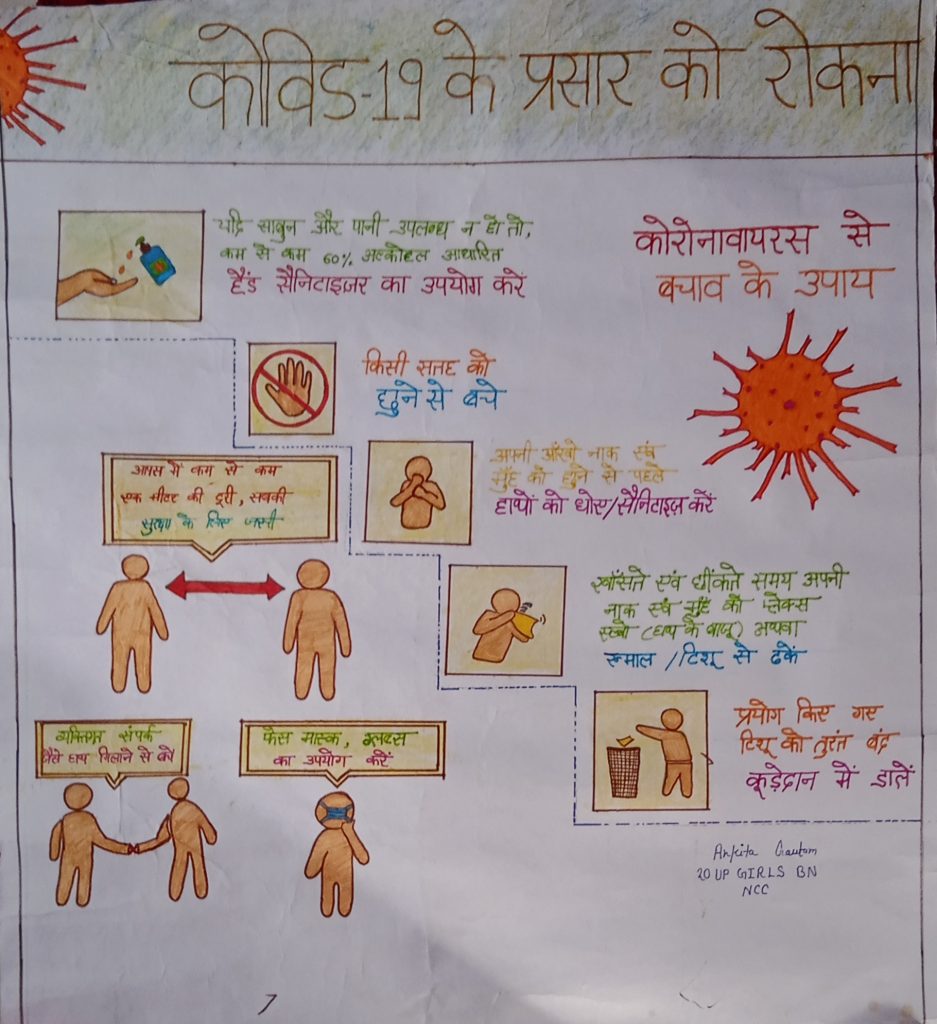 कोविड-19 के प्रसार को रोकना
यदि साबुन और पानी उपलब्ध न हो तो,
कम से कम 60% अल्कोहल आधारित
हैंड सैनिटाइजर का उपयोग करें
कोरोनावायरस से
बचाव के उपाय
किसी सतह को
छुने से बचे
अपनी आँखो नाक एवं
मुँह को छुने से पहले
हाथों को धोए/सैनिटाइज़ करें
आपस में कम से कम
एक मीटर की दूरी, सबकी
सुरक्षा के लिए जरुरी
खाँसते एवं छींकते समय अपनी
नाक एवं मुँह को फ्लेक्स
(हाथ के बाजू) अथवा
रुमाल /टिशू से ढकें
प्रयोग किए गए
टिशू को तुरंत बंद
कूड़ेदान में डालें
व्यक्तिगत संपर्क
जैसे हाथ मिलाने से बचे
फेस मास्क, ग्लव्स
का उपयोग करें
Ankita Gautam
20 UP GIRLS BN
NCC